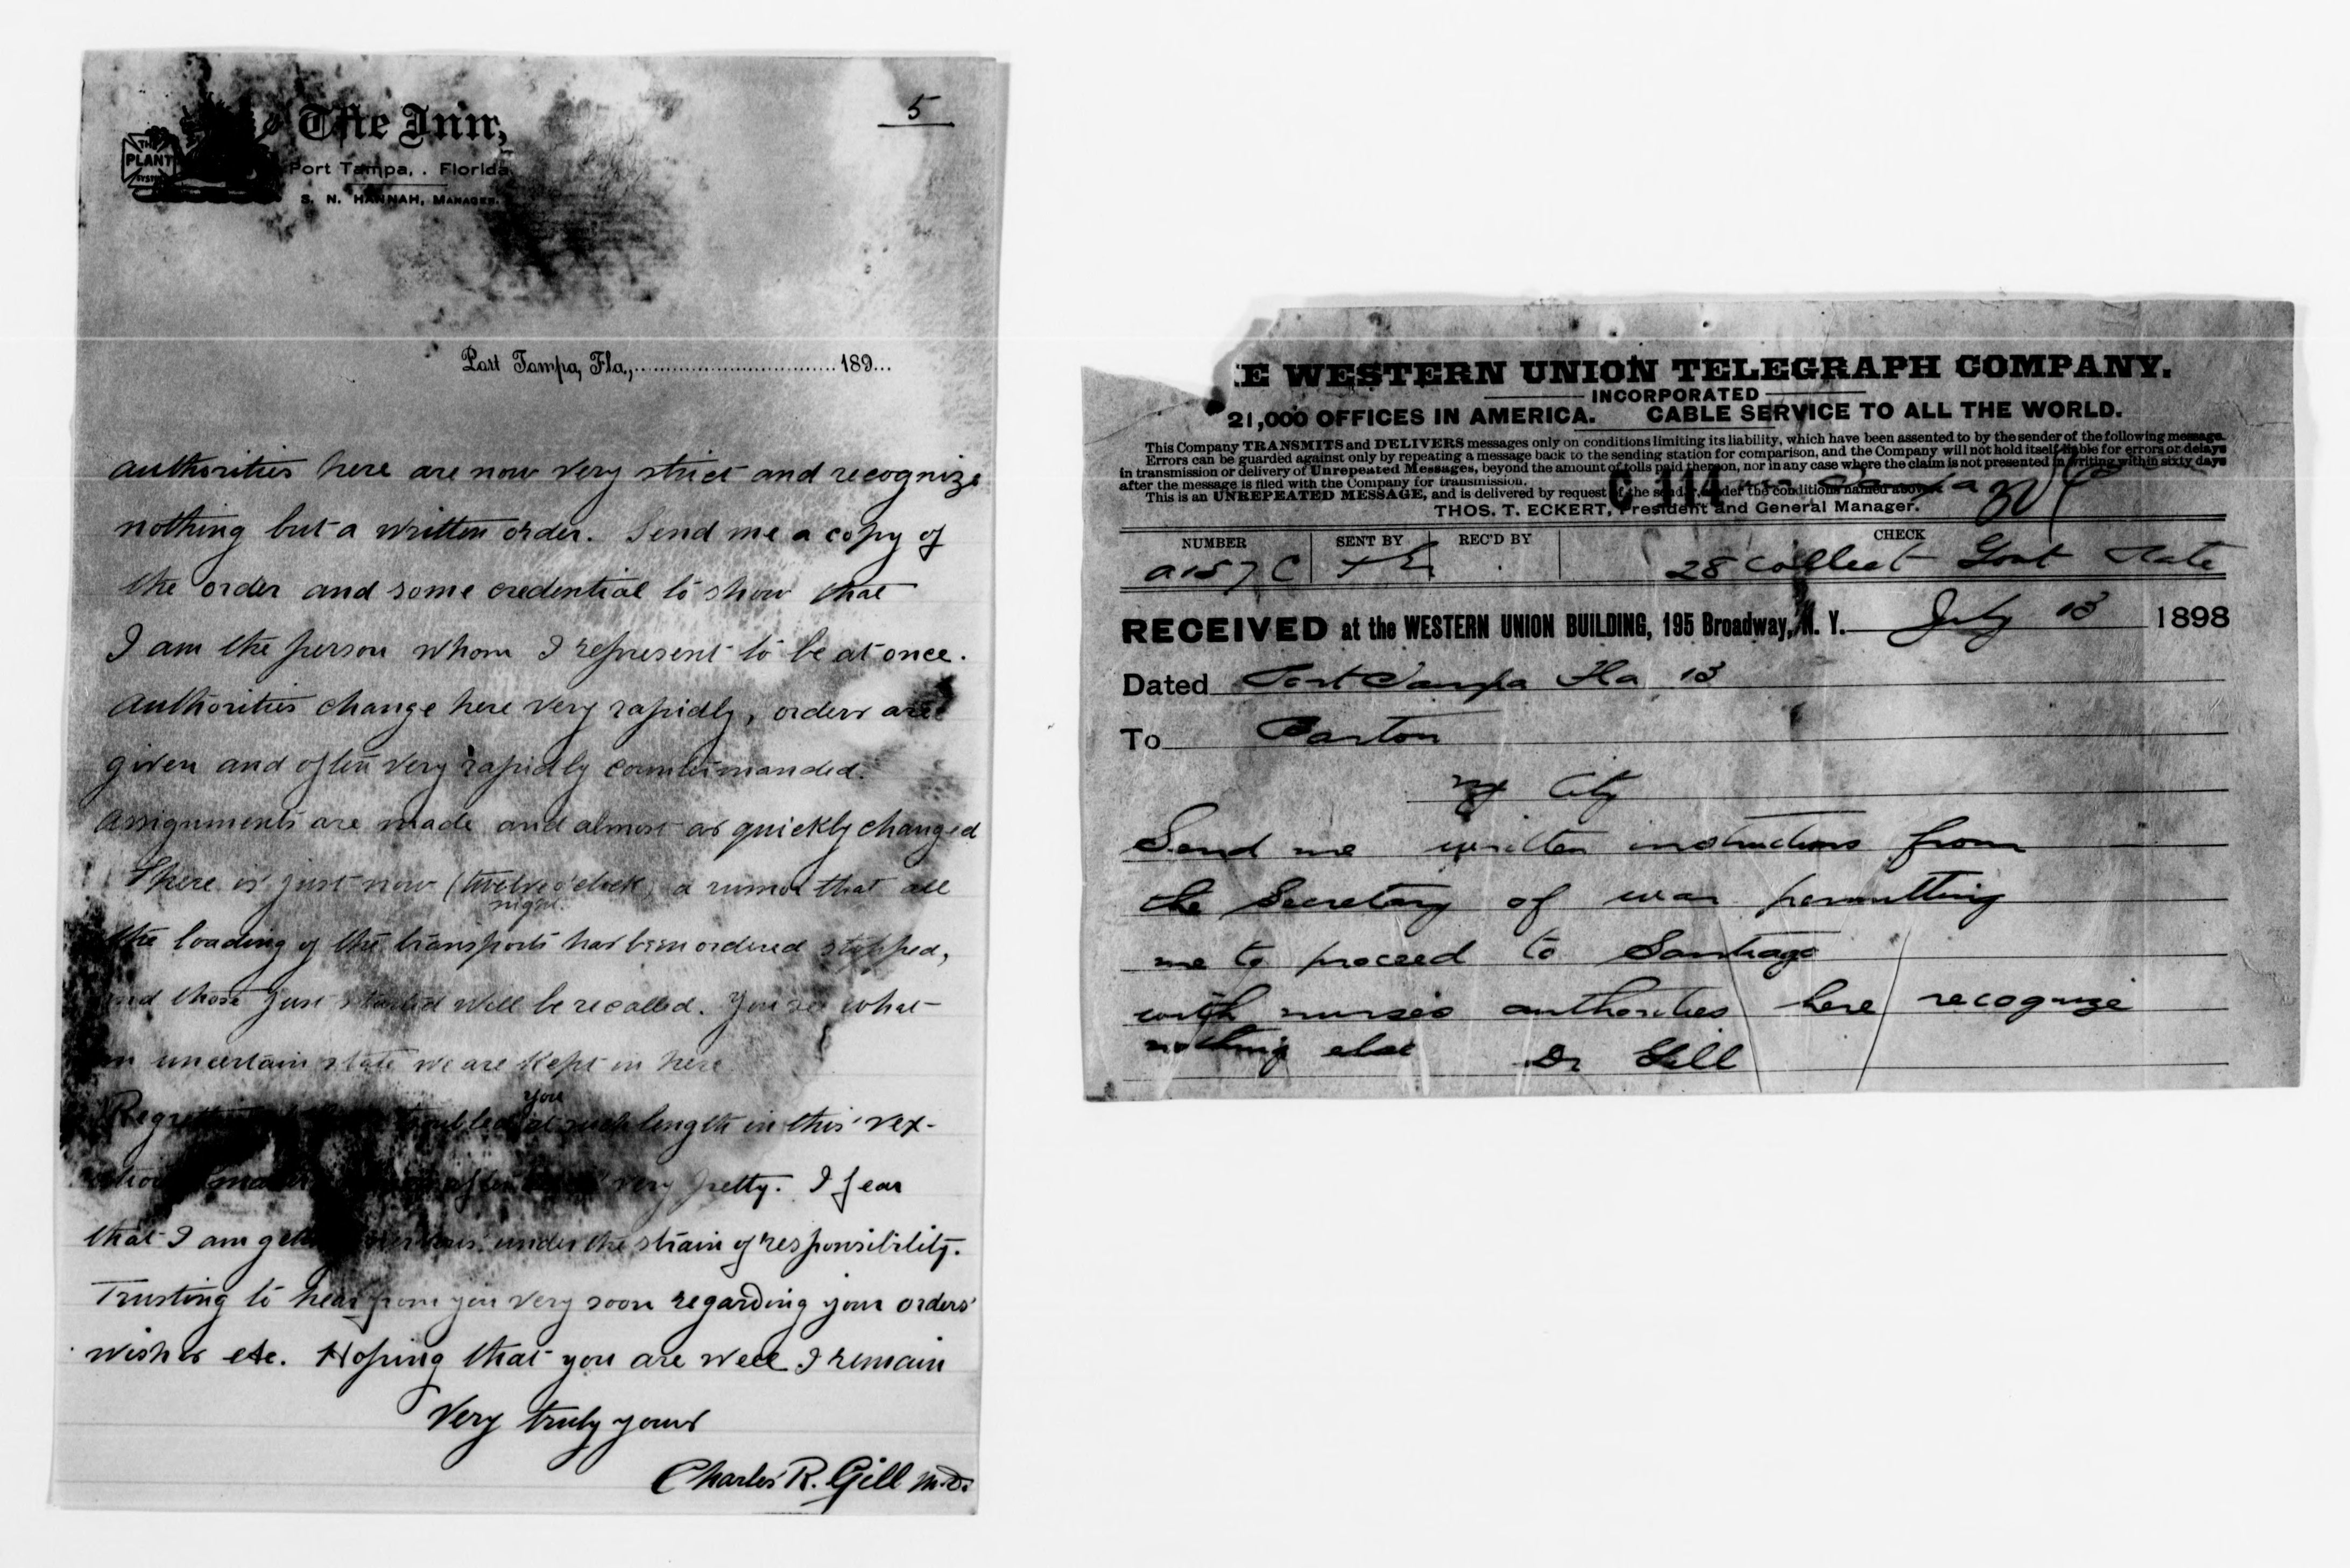 5
The Inn,
THE PLANT SYSTEM
Port Tampa, . Florida
S. N. HANNAH, MANAGER.
Port Tampa, Fla., 189...
authorities here are now very strict and recognize
nothing but a written order. Send me a copy of
the order and some credential to show that
I am the person whom I represent to be at once.
Authorities change here very rapidly, orders are
given and often very rapidly countermanded.
Assignments are made and almost as quickly changed
There is just now (twelve o'clock night) a rumor that all
the loading of the transports has been ordered stopped,
and those just started will be recalled. You see what
an uncertain state we are kept in here
troubled you at such length in this vex-
very petty. I fear
that I am getting nervous under the strain of responsibility.
Trusting to hear from you very soon regarding your orders
wishes etc. Hoping that you are well I remain
Very truly yours
Charles R. Gill M.D.
E WESTERN UNION TELEGRAPH COMPANY.
INCORPORATED
21,000 OFFICES IN AMERICA. CABLE SERVICE TO ALL THE WORLD.
This Company TRANSMITS and DELIVERS messages only on conditions limiting its liability, which have been assented to by the sender of the following message.
Errors can be guarded against only by repeating a message back to the sending station for comparison, and the Company will not hold itself liable for errors or delays
in transmission or delivery of Unrepeated Messages, beyond the amount of tolls paid thereon, nor in any case where the claim is not presented in writing within sixty days
after the message is filed with the Company for transmission.
This is an UNREPEATED MESSAGE, and is delivered by request of the sender, under the conditions named above.
C 114
THOS. T. ECKERT, President and General Manager.
NUMBER SENT BY REC'D BY CHECK
a157 C 28 Collect Govt Rate
RECEIVED at the WESTERN UNION BUILDING, 195 Broadway, N. Y. July 13 1898
Dated Port Tampa Fla 13
To Barton
NY City
Send me written instructions from
the Secretary of war permitting
me to proceed to Santiago
with nurses authorities here recognize
nothing else Dr Gill